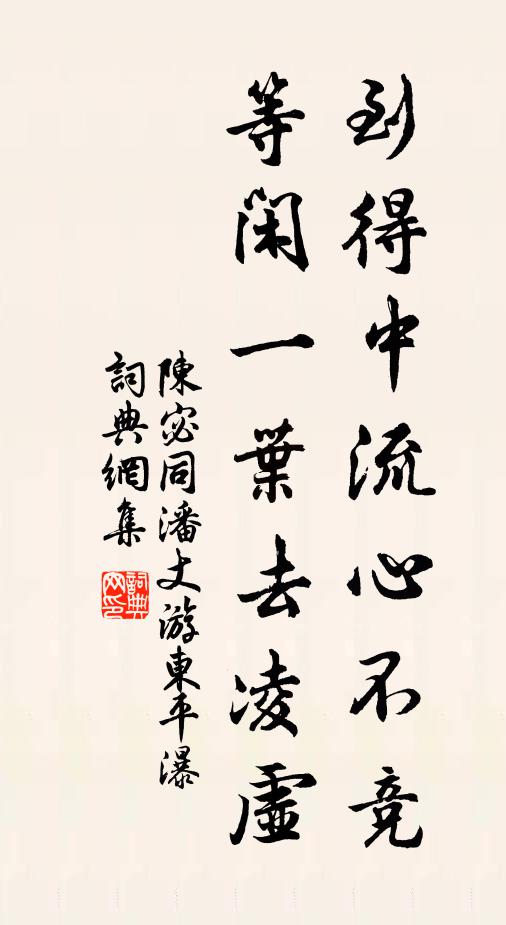 到得中流心不竞
等閑一葉去凌虛
陳宓同潘丈游東平瀑
詞典網集
詞典网印